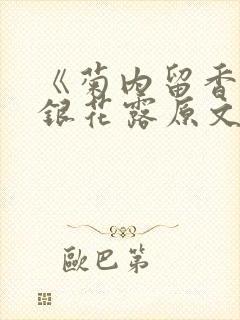 《菊内留香
銀花露原文
歐巴第